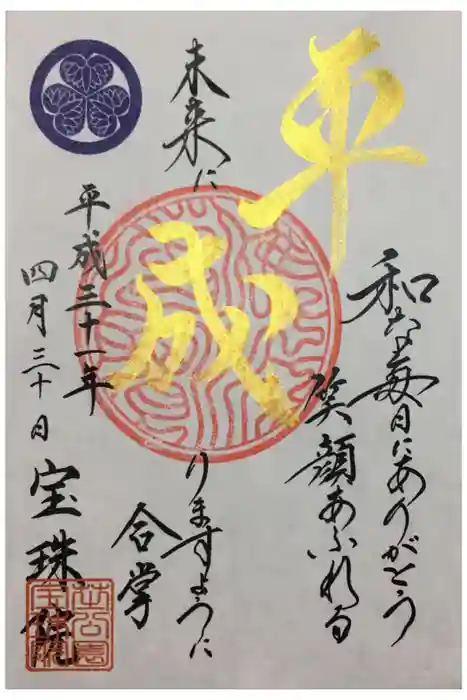 平
和な毎日にありがとう
笑顔あふれる
未来に
成
りますように
合掌
平成三十一年
四月三十日
宝珠院